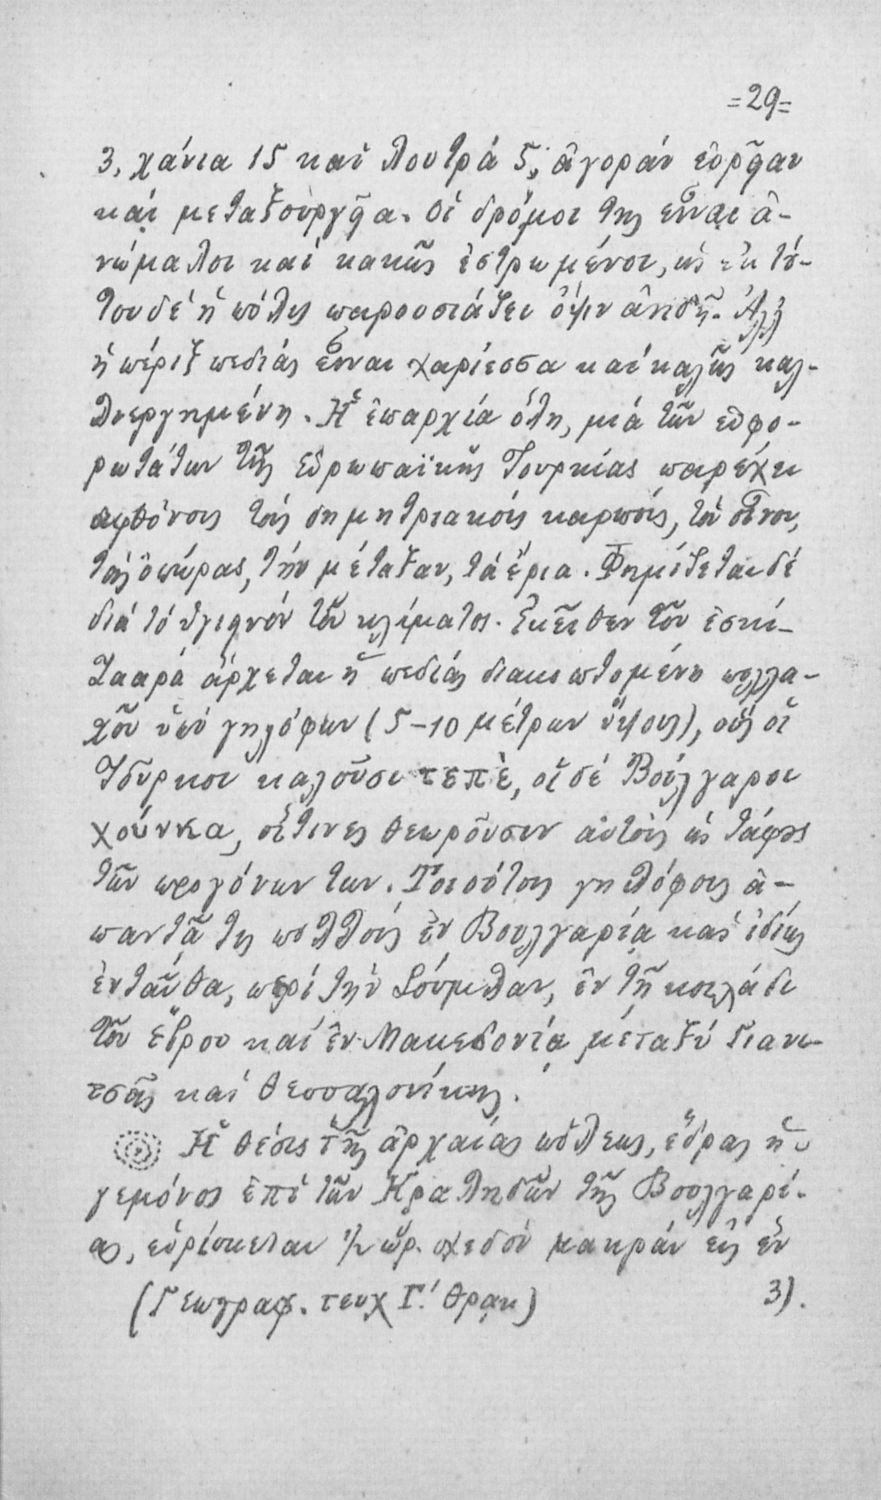 =29=
3, χάνια 15 καὶ λουτρά 5, ἀγοράν εὐρεῖαν
καὶ μεταξουργεῖα. Οἱ δρόμοι της εἶναι ἀ-
νώμαλοι καὶ κακῶς ἐστρωμένοι, ὡς ἐκ τού-
του δὲ ἡ πόλις παρουσιάζει ὄψιν ἀηδῆ. Ἀλλ'
ἡ πέριξ πεδιάς εἶναι χαρίεσσα καὶ καλῶς καλ-
λιεργημένη. Ἡ ἐπαρχία ὅλη, μιά τῶν εὐφο-
ρωτάτων τῆς Εὐρωπαϊκῆς Τουρκίας παρέχει
ἀφθόνους τούς δημητριακούς καρπούς, τὸν οἶνον,
τάς ὀπώρας, τήν μέταξαν, τά ἔρια. Φημίζεται δέ
διά τό ὑγιεινόν τοῦ κλίματος. Ἐκεῖθεν τοῦ Ἐσκί-
Ζααρά ἄρχεται ἡ πεδιάς διακοπτομένη πολλα-
χοῦ ὑπό γηλόφων (5-10 μέτρων ὕψους), οὕς οἱ
Τοῦρκοι καλοῦσι τεπὲ, οἱ δέ Βούλγαροι
χούνκα, οἵτινες θεωροῦσιν αὐτούς ὡς τάφους
τῶν προγόνων των. Τοιούτους γηλόφους ἀ-
παντᾶ τις πολλούς ἐν Βουλγαρία καὶ ἰδίως
ἐνταῦθα, περί τήν Σούμλαν, ἐν τῇ κοιλάδι
τοῦ Ἕβρου καί ἐν Μακεδονία μεταξύ Γιανι-
τσᾶς καὶ Θεσσαλονίκης.
Ἡ θέσις τῆς ἀρχαίας πόλεως, ἕδρας ἡ-
γεμόνος ἐπὶ τῶν Κραλιδῶν τῆς Βουλγαρί-
ας, εὑρίσκεται 1/2 ὥρ. σχεδόν μακράν εἰς ἕν
(Γεωγραφ. τευχ Γ.' Θρακ) 3).